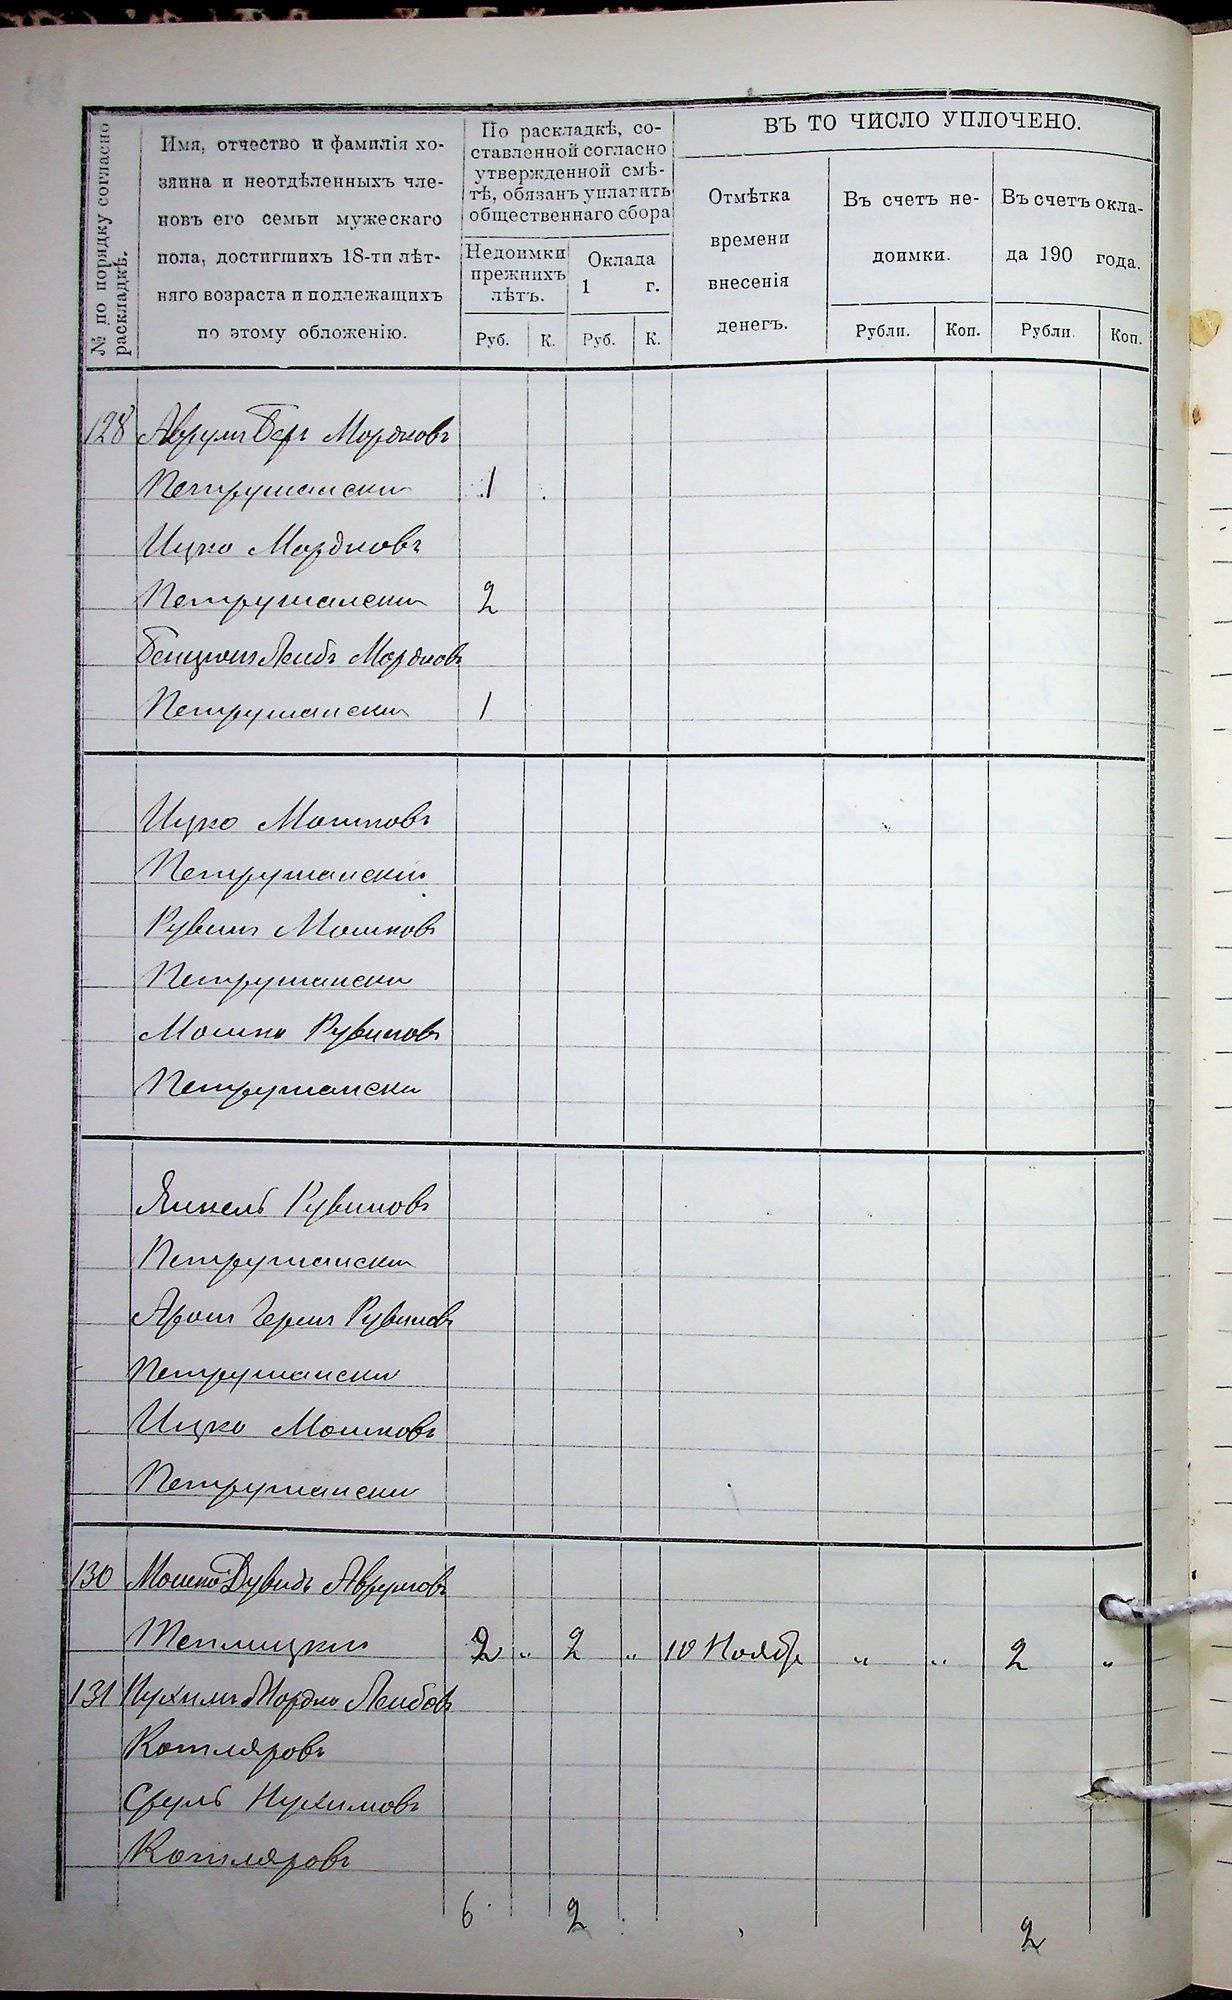 № по порядку согласно
раскладкѣ.
Имя, отчество и фамилія хо-
зяина и неотдѣленныхъ чле-
новъ его семьи мужескаго
пола, достигшихъ 18-ти лѣт-
няго возраста и подлежащихъ
по этому обложенію.
По раскладкѣ, со-
ставленной согласно
утвержденной смѣ-
тѣ, обязанъ уплатить
общественнаго сбора
Недоимки
прежнихъ
лѣтъ.
Оклада
1 г.
Руб. К. Руб. К.
ВЪ ТО ЧИСЛО УПЛОЧЕНО.
Отмѣтка
времени
внесенія
денегъ.
Въ счетъ не-
доимки.
Рубли. Коп.
Въ счетъ окла-
да 190 года.
Рубли. Коп.
128 Аврумъ Беръ Мордковъ
Петрушански 1
Ицко Мордковъ
Петрушански 2
Бенціонъ Лейбъ Мордковъ
Петрушански 1
Ицко Мошковъ
Петрушански
Рувинъ Мошковъ
Петрушански
Мошко Рувиновъ
Петрушански
Янкель Рувиновъ
Петрушански
Аронъ Гершъ Рувиновъ
Петрушански
Ицко Мошковъ
Петрушански
130 Мошко Дувидъ Аврумовъ
Теплицки 2 „ 2 „ 10 Ноябр „ „ 2 „
131 Нухимъ Мордко Лейбовъ
Котляровъ
Сруль Нухимовъ
Котляровъ
6 2 2